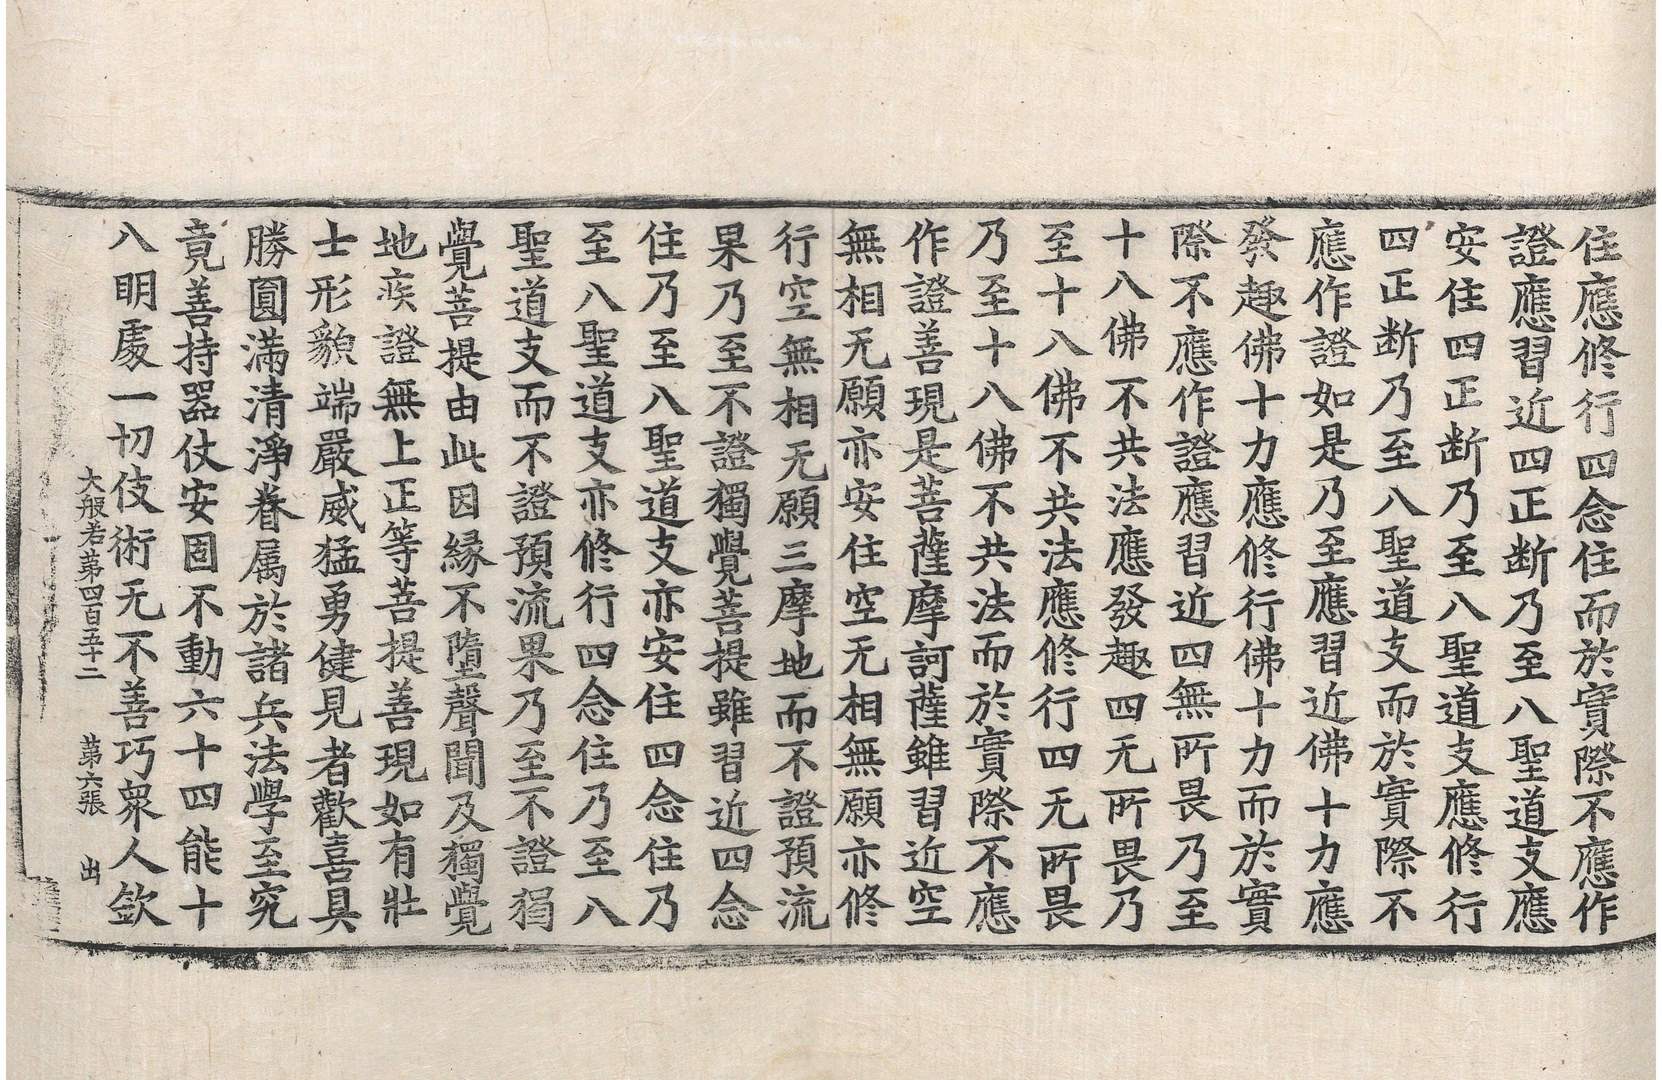 住應修行四念住而於實際不應作
證應習近四正断乃至八聖道支應
安住四正断乃至八聖道支應修行
四正断乃至八聖道支而於實際不
應作證如是乃至應習近佛十力應
發趣佛十力應修行佛十力而於實
際不應作證應習近四無所畏乃至
十八佛不共法應發趣四无所畏乃
至十八佛不共法應修行四无所畏
乃至十八佛不共法而於實際不應
作證善現是菩薩摩訶薩雖習近空
無相无願亦安住空无相無願亦修
行空無相无願三摩地而不證預流
果乃至不證獨覺菩提雖習近四念
住乃至八聖道支亦安住四念住乃
至八聖道支亦修行四念住乃至八
聖道支而不證預流果乃至不證獨
覺菩提由此因緣不墮聲聞及獨覺
地疾證無上正等菩提善現如有壯
士形貌端嚴威猛勇健見者歡喜具
勝圓滿清淨眷属於諸兵法學至究
竟善持器仗安固不動六十四能十
八明處一切伎術无不善巧衆人欽
大般若第四百五十二 第六張 出